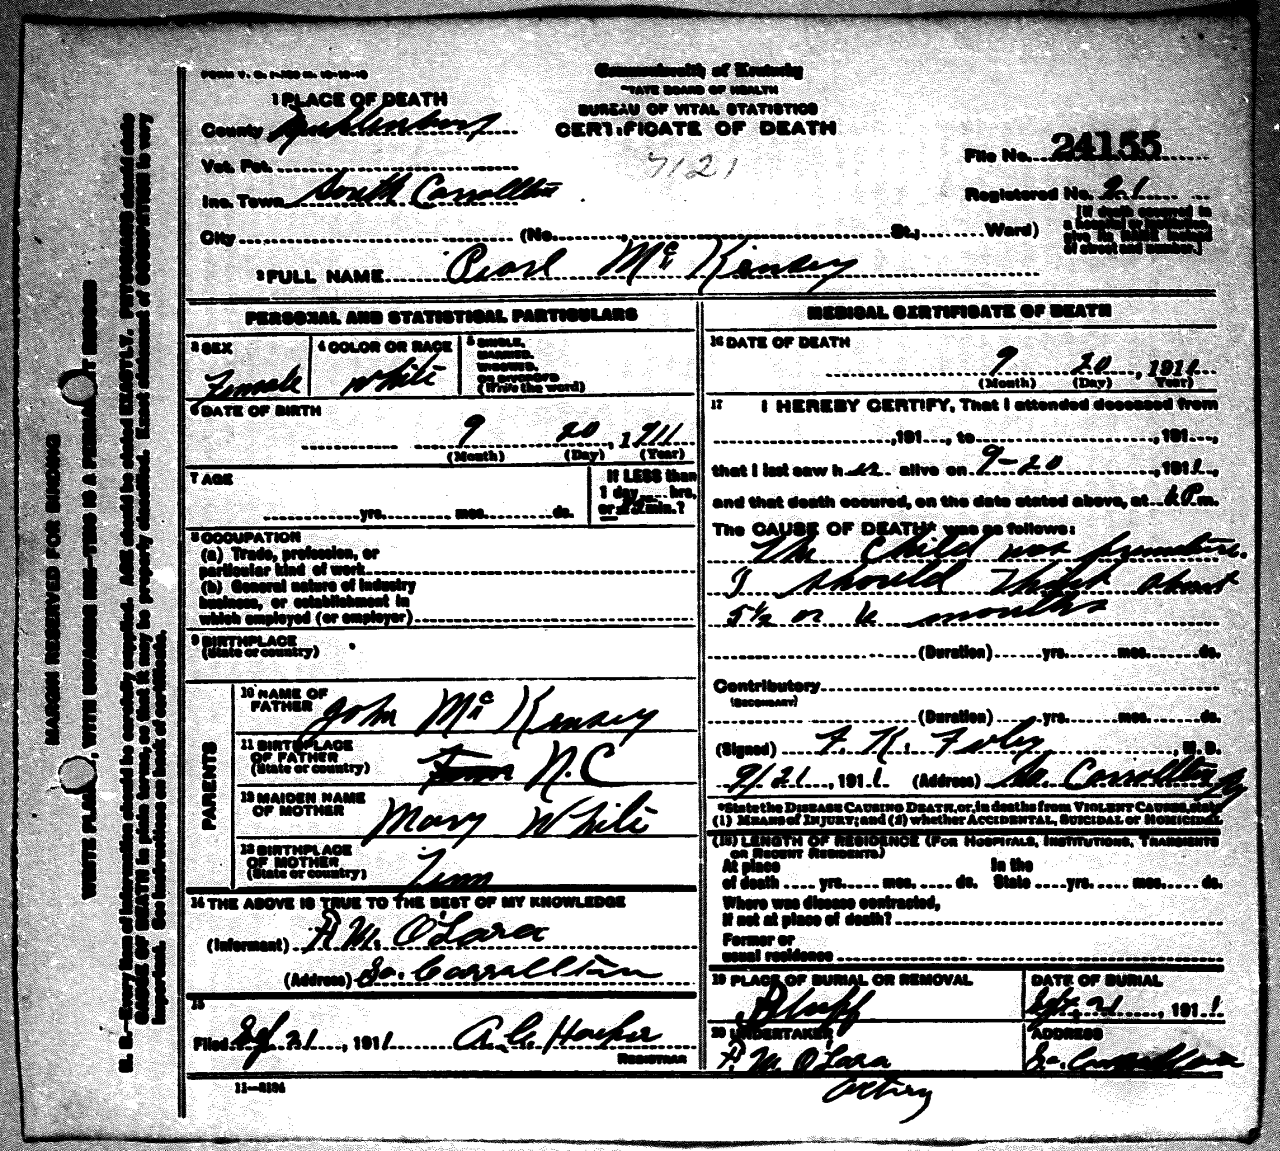 FORM V. S. 1-
Commonwealth of Kentucky
STATE BOARD OF HEALTH
BUREAU OF VITAL STATISTICS
CERTIFICATE OF DEATH
7121
1 PLACE OF DEATH
County Muhlenberg
Vot. Pct.
Inc. Town South Carrollton
City (No. St.; Ward)
File No. 24155
Registered No. 21
[If death occurred in a hospital or institution, give its NAME instead of street and number.]
2 FULL NAME Pearl McKinsey
PERSONAL AND STATISTICAL PARTICULARS
3 SEX Female
4 COLOR OR RACE White
5 SINGLE, MARRIED, WIDOWED, OR DIVORCED (Write the word)
6 DATE OF BIRTH
9 20, 1911
(Month) (Day) (Year)
7 AGE
yrs. mos. ds.
If LESS than 1 day hrs. or min.?
8 OCCUPATION
(a) Trade, profession, or particular kind of work
(b) General nature of industry business, or establishment in which employed (or employer)
9 BIRTHPLACE (State or country)
PARENTS
10 NAME OF FATHER John McKinsey
11 BIRTHPLACE OF FATHER (State or country) N.C
12 MAIDEN NAME OF MOTHER Mary White
13 BIRTHPLACE OF MOTHER (State or country) Tenn
14 THE ABOVE IS TRUE TO THE BEST OF MY KNOWLEDGE
(Informant) H M. O'Lara
(Address) So. Carrallton
15
Filed Sep 21, 1911 A. C. Harper
REGISTRAR
11-3184
MEDICAL CERTIFICATE OF DEATH
16 DATE OF DEATH
9 20, 1911
(Month) (Day) (Year)
17 I HEREBY CERTIFY, That I attended deceased from
, 191 , to , 191 ,
that I last saw h er alive on 9-20, 1911,
and that death occured, on the date stated above, at 6 P m.
The CAUSE OF DEATH* was as follows:
The Child was premature.
I should think about
5½ or 6 months
(Duration) yrs. mos. ds.
Contributory
(SECONDARY)
(Duration) yrs. mos. ds.
(Signed) F. K. Foley, M. D.
9/21, 1911 (Address) So. Carrollton Ky
*State the DISEASE CAUSING DEATH, or, in deaths from VIOLENT CAUSES, state
(1) MEANS OF INJURY; and (2) whether ACCIDENTAL, SUICIDAL or HOMICIDAL
(18) LENGTH OF RESIDENCE (FOR HOSPITALS, INSTITUTIONS, TRANSIENTS OR RECENT RESIDENTS)
At place of death yrs. mos. ds. In the State yrs. mos. ds.
Where was disease contracted, if not at place of death?
Former or usual residence
19 PLACE OF BURIAL OR REMOVAL Bluff
DATE OF BURIAL Sept. 21, 1911
20 UNDERTAKER H M O'Lara
ADDRESS So. Carrollton
Acting
MARGIN RESERVED FOR BINDING
WRITE PLAINLY, WITH UNFADING INK—THIS IS A PERMANENT RECORD
N. B.—Every item of information should be carefully supplied. AGE should be stated EXACTLY. PHYSICIANS should state
CAUSE OF DEATH in plain terms, so that it may be properly classified. Exact statement of OCCUPATION is very
important. See instructions on back of certificate.